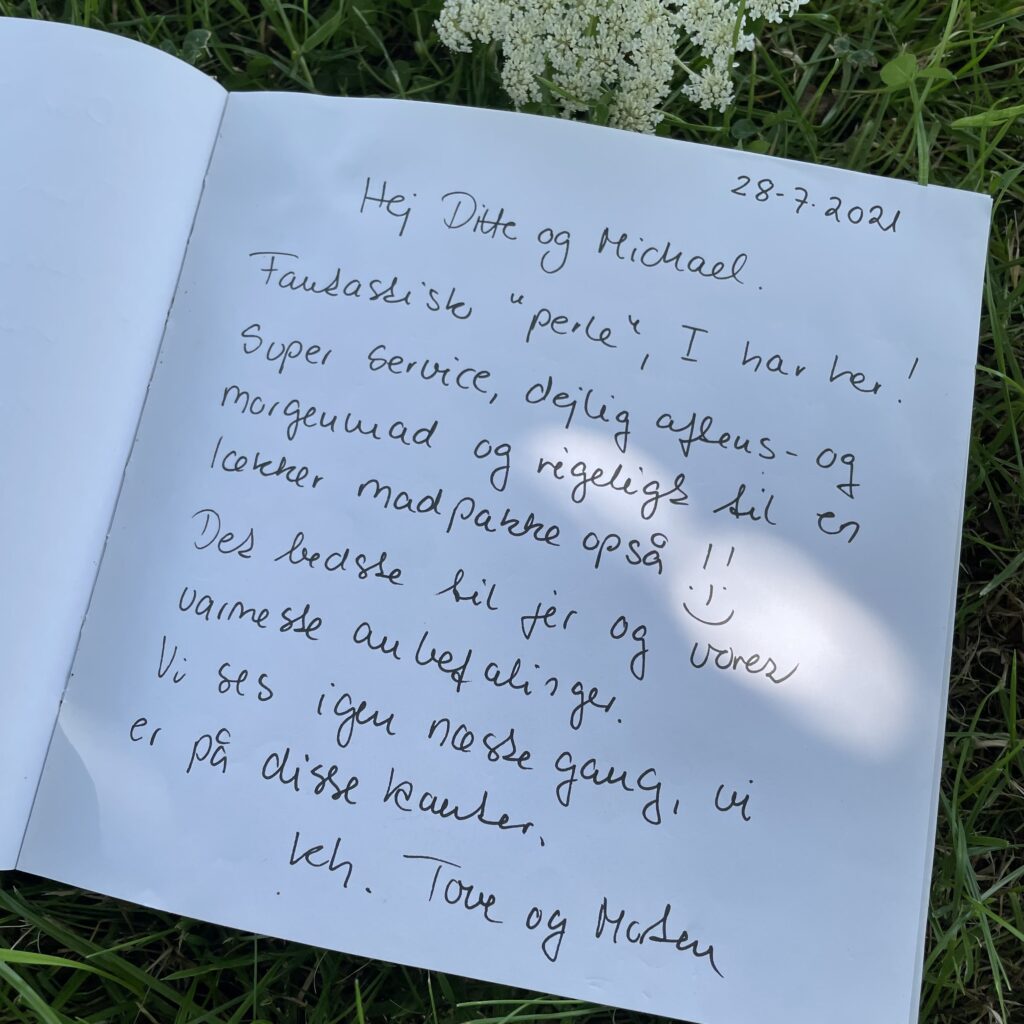 28-7.2021
Hej Ditte og Michael.
Fantastisk "perle", I har her!
Super service, dejlig aftens- og
morgenmad og rigeligt til en
lækker madpakke også !!
Det bedste til jer og vores
varmeste anbefalinger.
Vi ses igen næste gang, vi
er på disse kanter.
kh. Tove og Morten